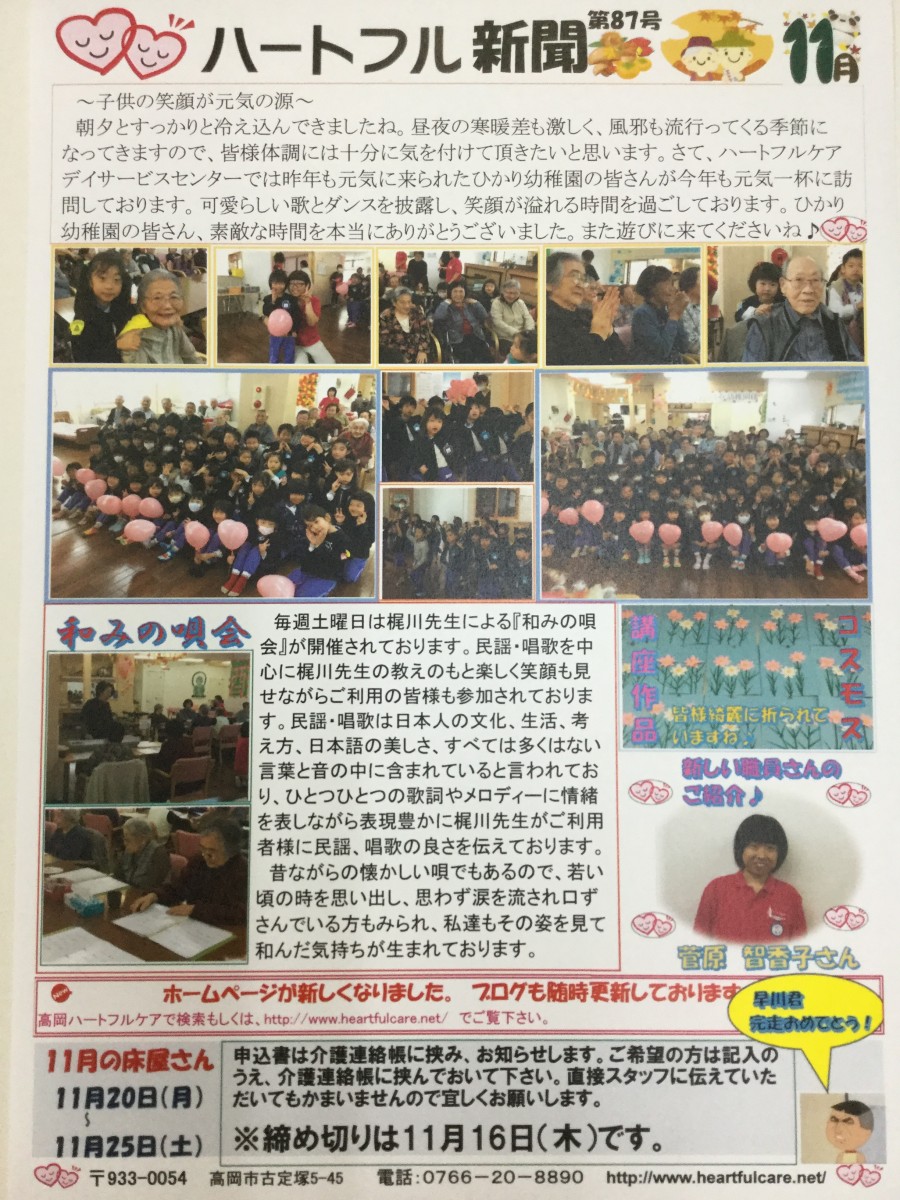 ハートフル新聞 第87号 11月
～子供の笑顔が元気の源～
朝夕とすっかりと冷え込んできましたね。昼夜の寒暖差も激しく、風邪も流行ってくる季節に
なってきますので、皆様体調には十分に気を付けて頂きたいと思います。さて、ハートフルケア
デイサービスセンターでは昨年も元気に来られたひかり幼稚園の皆さんが今年も元気一杯に訪
問しております。可愛らしい歌とダンスを披露し、笑顔が溢れる時間を過ごしております。ひかり
幼稚園の皆さん、素敵な時間を本当にありがとうございました。また遊びに来てくださいね♪
和みの唄会
毎週土曜日は梶川先生による『和みの唄
会』が開催されております。民謡・唱歌を中
心に梶川先生の教えのもと楽しく笑顔も見
せながらご利用の皆様も参加されておりま
す。民謡・唱歌は日本人の文化、生活、考
え方、日本語の美しさ、すべては多くはない
言葉と音の中に含まれていると言われてお
り、ひとつひとつの歌詞やメロディーに情緒
を表しながら表現豊かに梶川先生がご利用
者様に民謡、唱歌の良さを伝えております。
昔ながらの懐かしい唄でもあるので、若い
頃の時を思い出し、思わず涙を流され口ず
さんでいる方もみられ、私達もその姿を見て
和んだ気持ちが生まれております。
コスモス
講座作品
皆様綺麗に折られて
いますね♪
新しい職員さんの
ご紹介♪
菅原 智香子さん
ホームページが新しくなりました。 ブログも随時更新しております
高岡ハートフルケアで検索もしくは、http://www.heartfulcare.net/ でご覧下さい。
早川君
完走おめでとう！
11月の床屋さん
11月20日(月)
～
11月25日(土)
申込書は介護連絡帳に挟み、お知らせします。ご希望の方は記入の
うえ、介護連絡帳に挟んでおいて下さい。直接スタッフに伝えていた
だいてもかまいませんので宜しくお願いします。
※締め切りは11月16日(木)です。
〒933-0054 高岡市古定塚5-45 電話:0766-20-8890 http://www.heartfulcare.net/